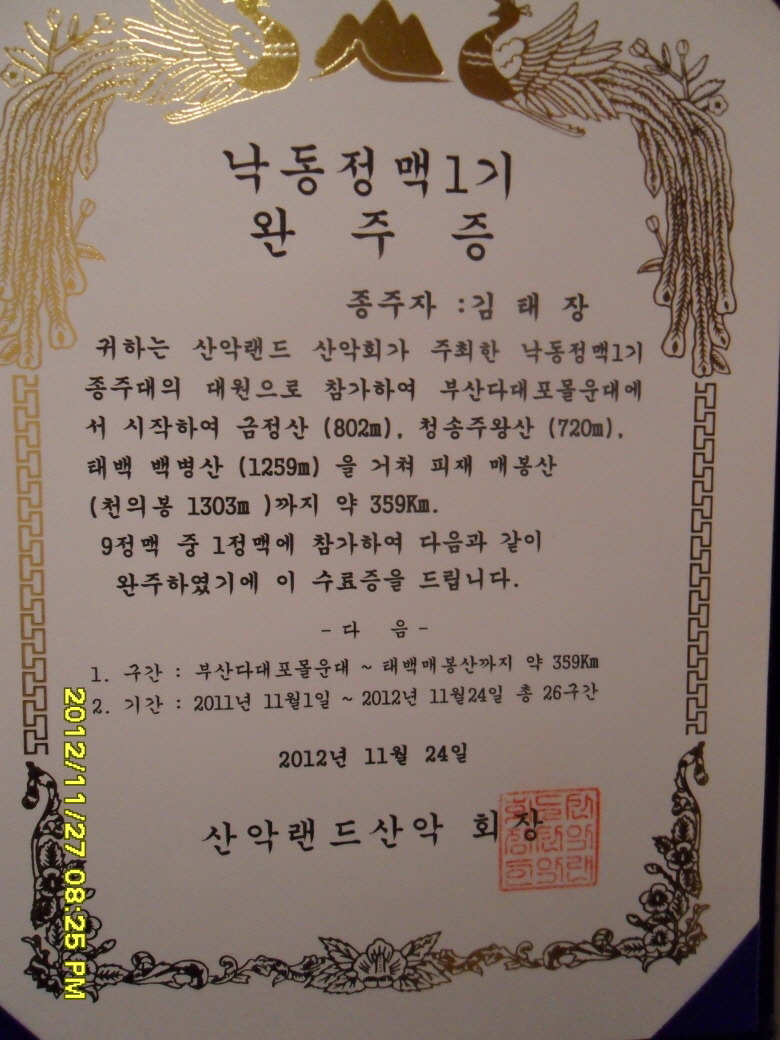 낙동정맥1기
완 주 증
종주자 : 김 태 장
귀하는 산악랜드 산악회가 주최한 낙동정맥1기
종주대의 대원으로 참가하여 부산다대포몰운대에
서 시작하여 금정산 (802m), 청송주왕산 (720m),
태백 백병산 (1259m) 을 거쳐 피재 매봉산
(천의봉 1303m )까지 약 359Km.
9정맥 중 1정맥에 참가하여 다음과 같이
완주하였기에 이 수료증을 드립니다.
- 다 음 -
1. 구간 : 부산다대포몰운대 ~ 태백매봉산까지 약 359Km
2. 기간 : 2011년 11월1일 ~ 2012년 11월24일 총 26구간
2012년 11월 24일
산악랜드산악 회 장
2012/11/27 08:25 PM